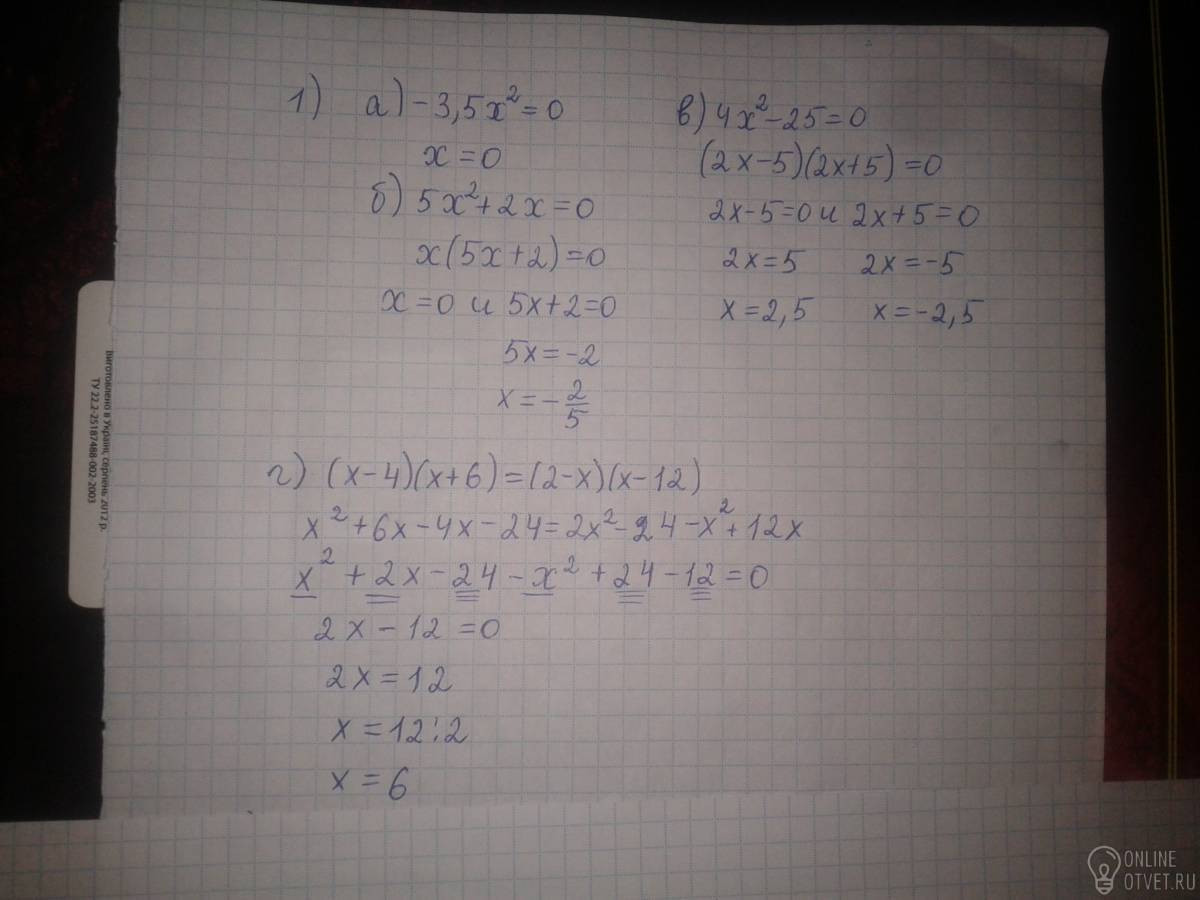 1) а) -3,5x² = 0
x = 0
б) 5x² + 2x = 0
x(5x + 2) = 0
x = 0 и 5x + 2 = 0
5x = -2
x = -2/5
в) 4x² - 25 = 0
(2x - 5)(2x + 5) = 0
2x - 5 = 0 и 2x + 5 = 0
2x = 5 2x = -5
x = 2,5 x = -2,5
г) (x - 4)(x + 6) = (2 - x)(x - 12)
x² + 6x - 4x - 24 = 2x² - 24 - x² + 12x
x² + 2x - 24 - x² + 24 - 12 = 0
2x - 12 = 0
2x = 12
x = 12:2
x = 6
Виготовлено в Україні, серпень 2012 р.
ТУ 22.2-25187488-002-2003
ONLINE
OTVET.RU